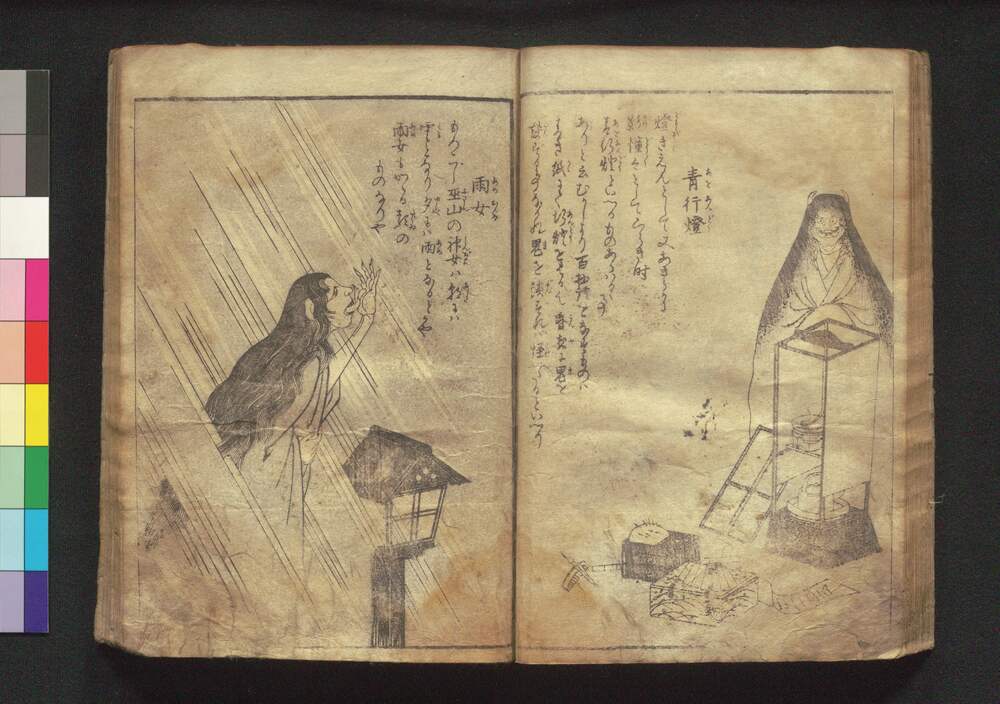 青行燈
燈きえんとして又あきらかに
影憧々としてくらき時
青行燈といへるものあらはるゝ事
ありと云むかしより百物語をなすものは
青き紙にて行燈をはる也昏夜に鬼を
談ずる事なかれ鬼を談ずれば怪いたるといへり
雨女
もろこし巫山の神女は朝には
雲となり夕には雨となるとかや
雨女もかゝる類の
ものなりや